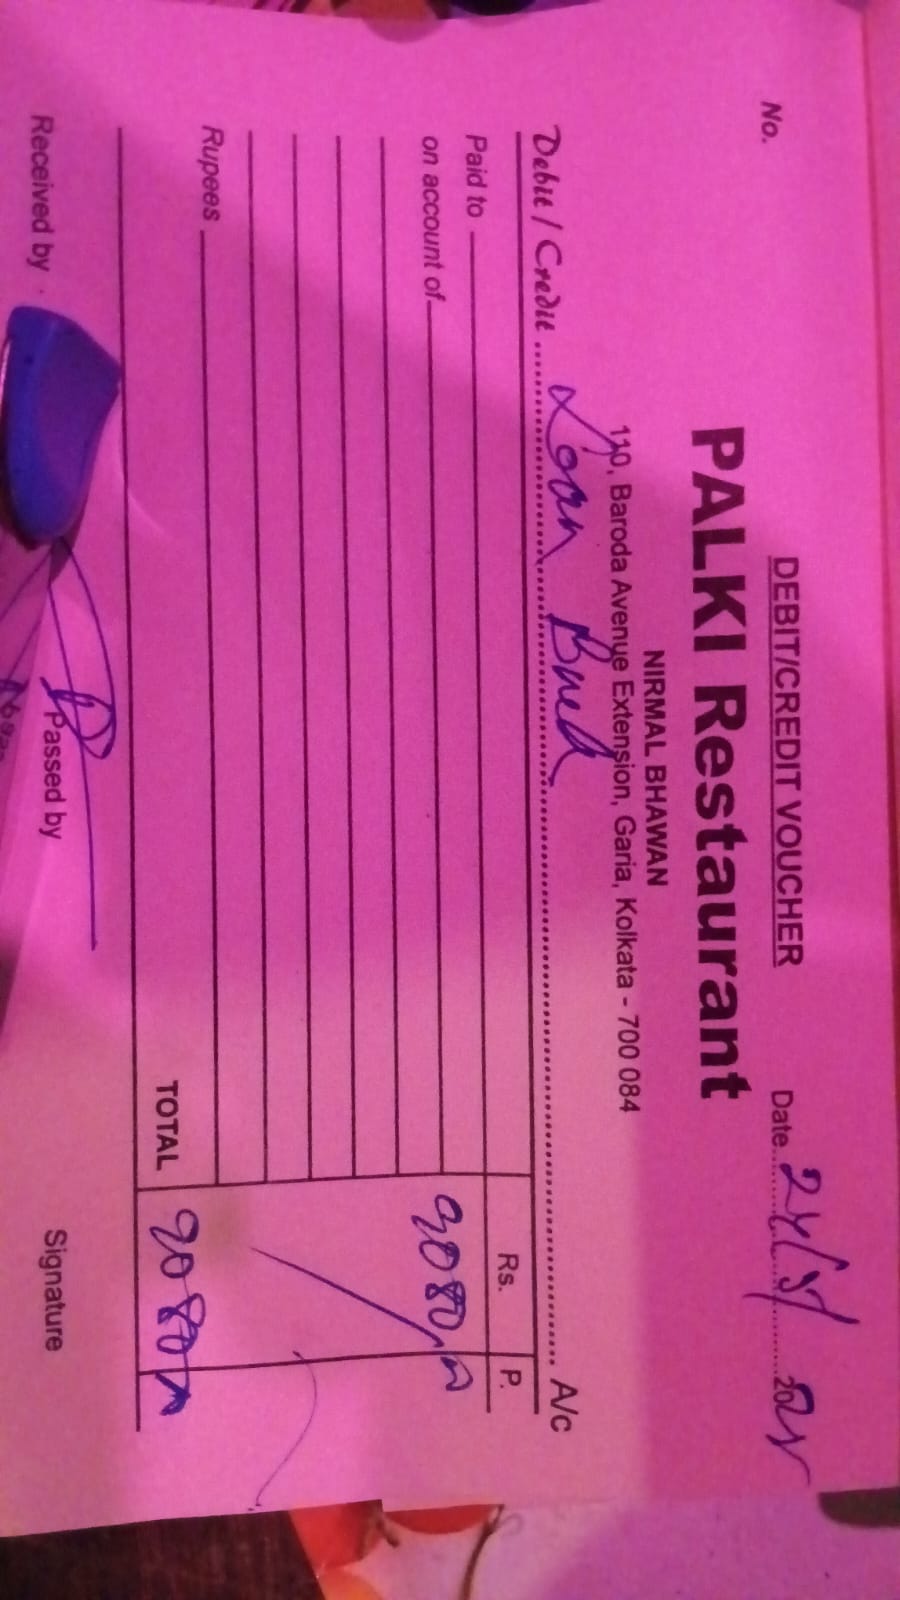 DEBIT/CREDIT VOUCHER
No. Date 24/5/ 20
PALKI Restaurant
NIRMAL BHAWAN
110, Baroda Avenue Extension, Garia, Kolkata - 700 084
Debit / Credit Loan A/c
Paid to Rs. P.
on account of 9080
Rupees
TOTAL 9080
Received by Passed by Signature